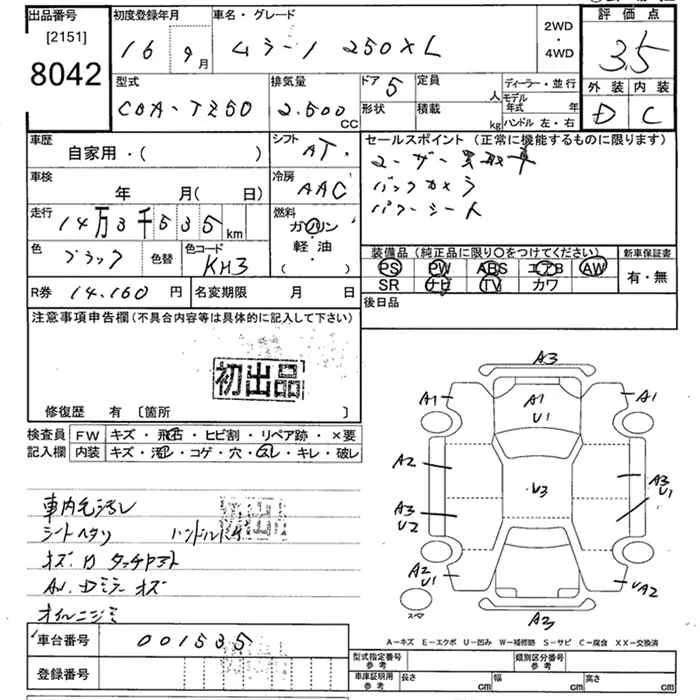 出品番号
[2151]
8042
初度登録年月
16 9月
車名・グレード
ムラーノ 250XL
2WD
・
4WD
評価点
3.5
外装 内装
D C
型式
CBA-TZ50
排気量
2.500
CC
ドア 5
定員
人
形状
積載
kg
ディーラー・並行
モデル
年式 年
ハンドル 左・右
車歴
自家用・( )
シフト
AT
セールスポイント(正常に機能するものに限ります)
ユーザー買取車
バックカメラ
パワーシート
車検
年 月(日)
冷房
AAC
走行
14万3千535km
燃料
ガソリン
軽油
( )
色
ブラック
色替
色コード
KH3
装備品(純正品に限り○をつけてください)
新車保証書
PS PW ABS エアB AW
SR ナビ TV カワ
有・無
R券 14.160円
名変期限 月 日
後日品
注意事項申告欄(不具合内容等は具体的に記入して下さい)
初出品
修復歴 有 〔箇所 〕
検査員
記入欄
FW キズ・飛石・ヒビ割・リペア跡・×要
内装 キズ・汚れ・コゲ・穴・スレ・キレ・破レ
車内毛汚レ
シートヘタリ
A3
A1
A1
U1
A1
A2
V3
A3
U1
A3
U2
A2
U1
UA2
A3
スペア
A-キズ E-エクボ U-凹み W-補修跡 S-サビ C-腐食 XX-交換済
車台番号 001535
登録番号
型式指定番号
参考
類別区分番号
参考
車庫証明用
参考
長さ cm
幅 cm
高さ cm